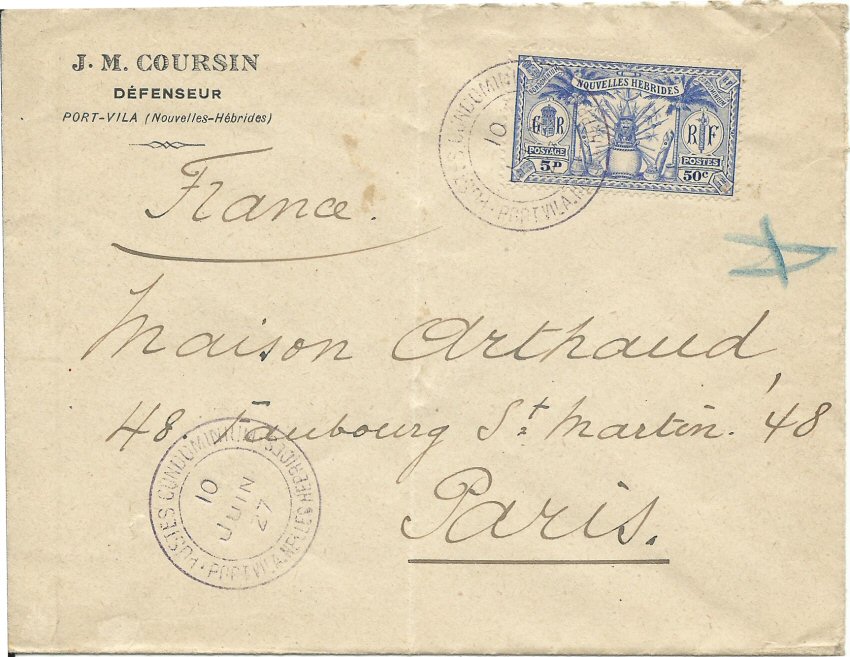 J. M. COURSIN
DÉFENSEUR
PORT-VILA (Nouvelles-Hébrides)
NOUVELLES HÉBRIDES
G R
R F
POSTAGE
POSTES
5D
50c
10
POSTES CONDOMINIUM
PORT VILA.
France.
Maison Arthaud,
48. Faubourg St Martin. 48
Paris.
POSTES CONDOMINIUM
PORT VILA. NELLES HEBRIDES
10
JUIN
27